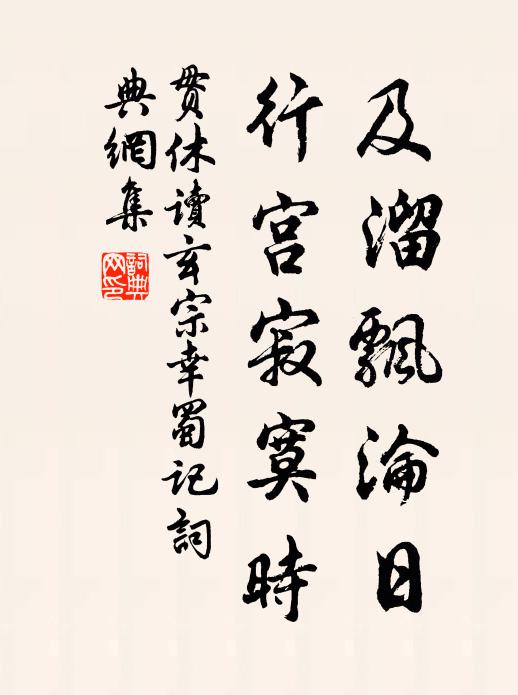 及溜飄淪日
行宮寂寞時
貫休讀玄宗幸蜀記詞
典網集
詞典
网印